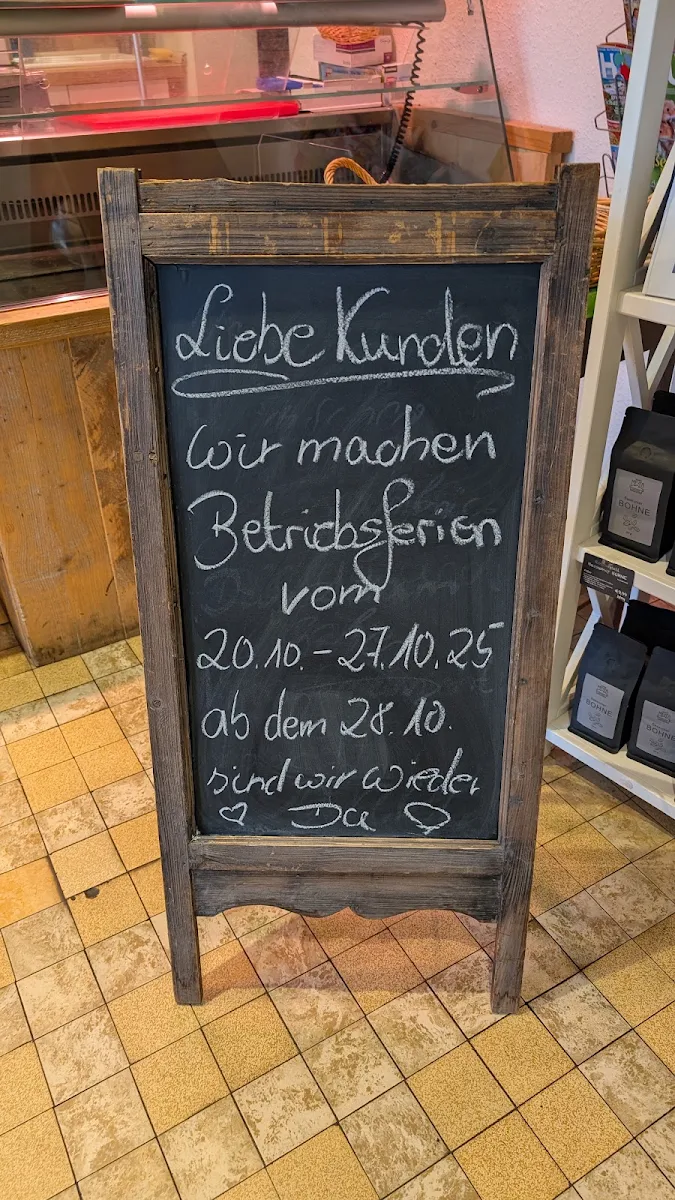 Liebe Kunden
wir machen
Betriebsferien
vom
20.10.-27.10.25
ab dem 28.10.
sind wir wieder
Da
BOHNE
BOHNE
BOHNE